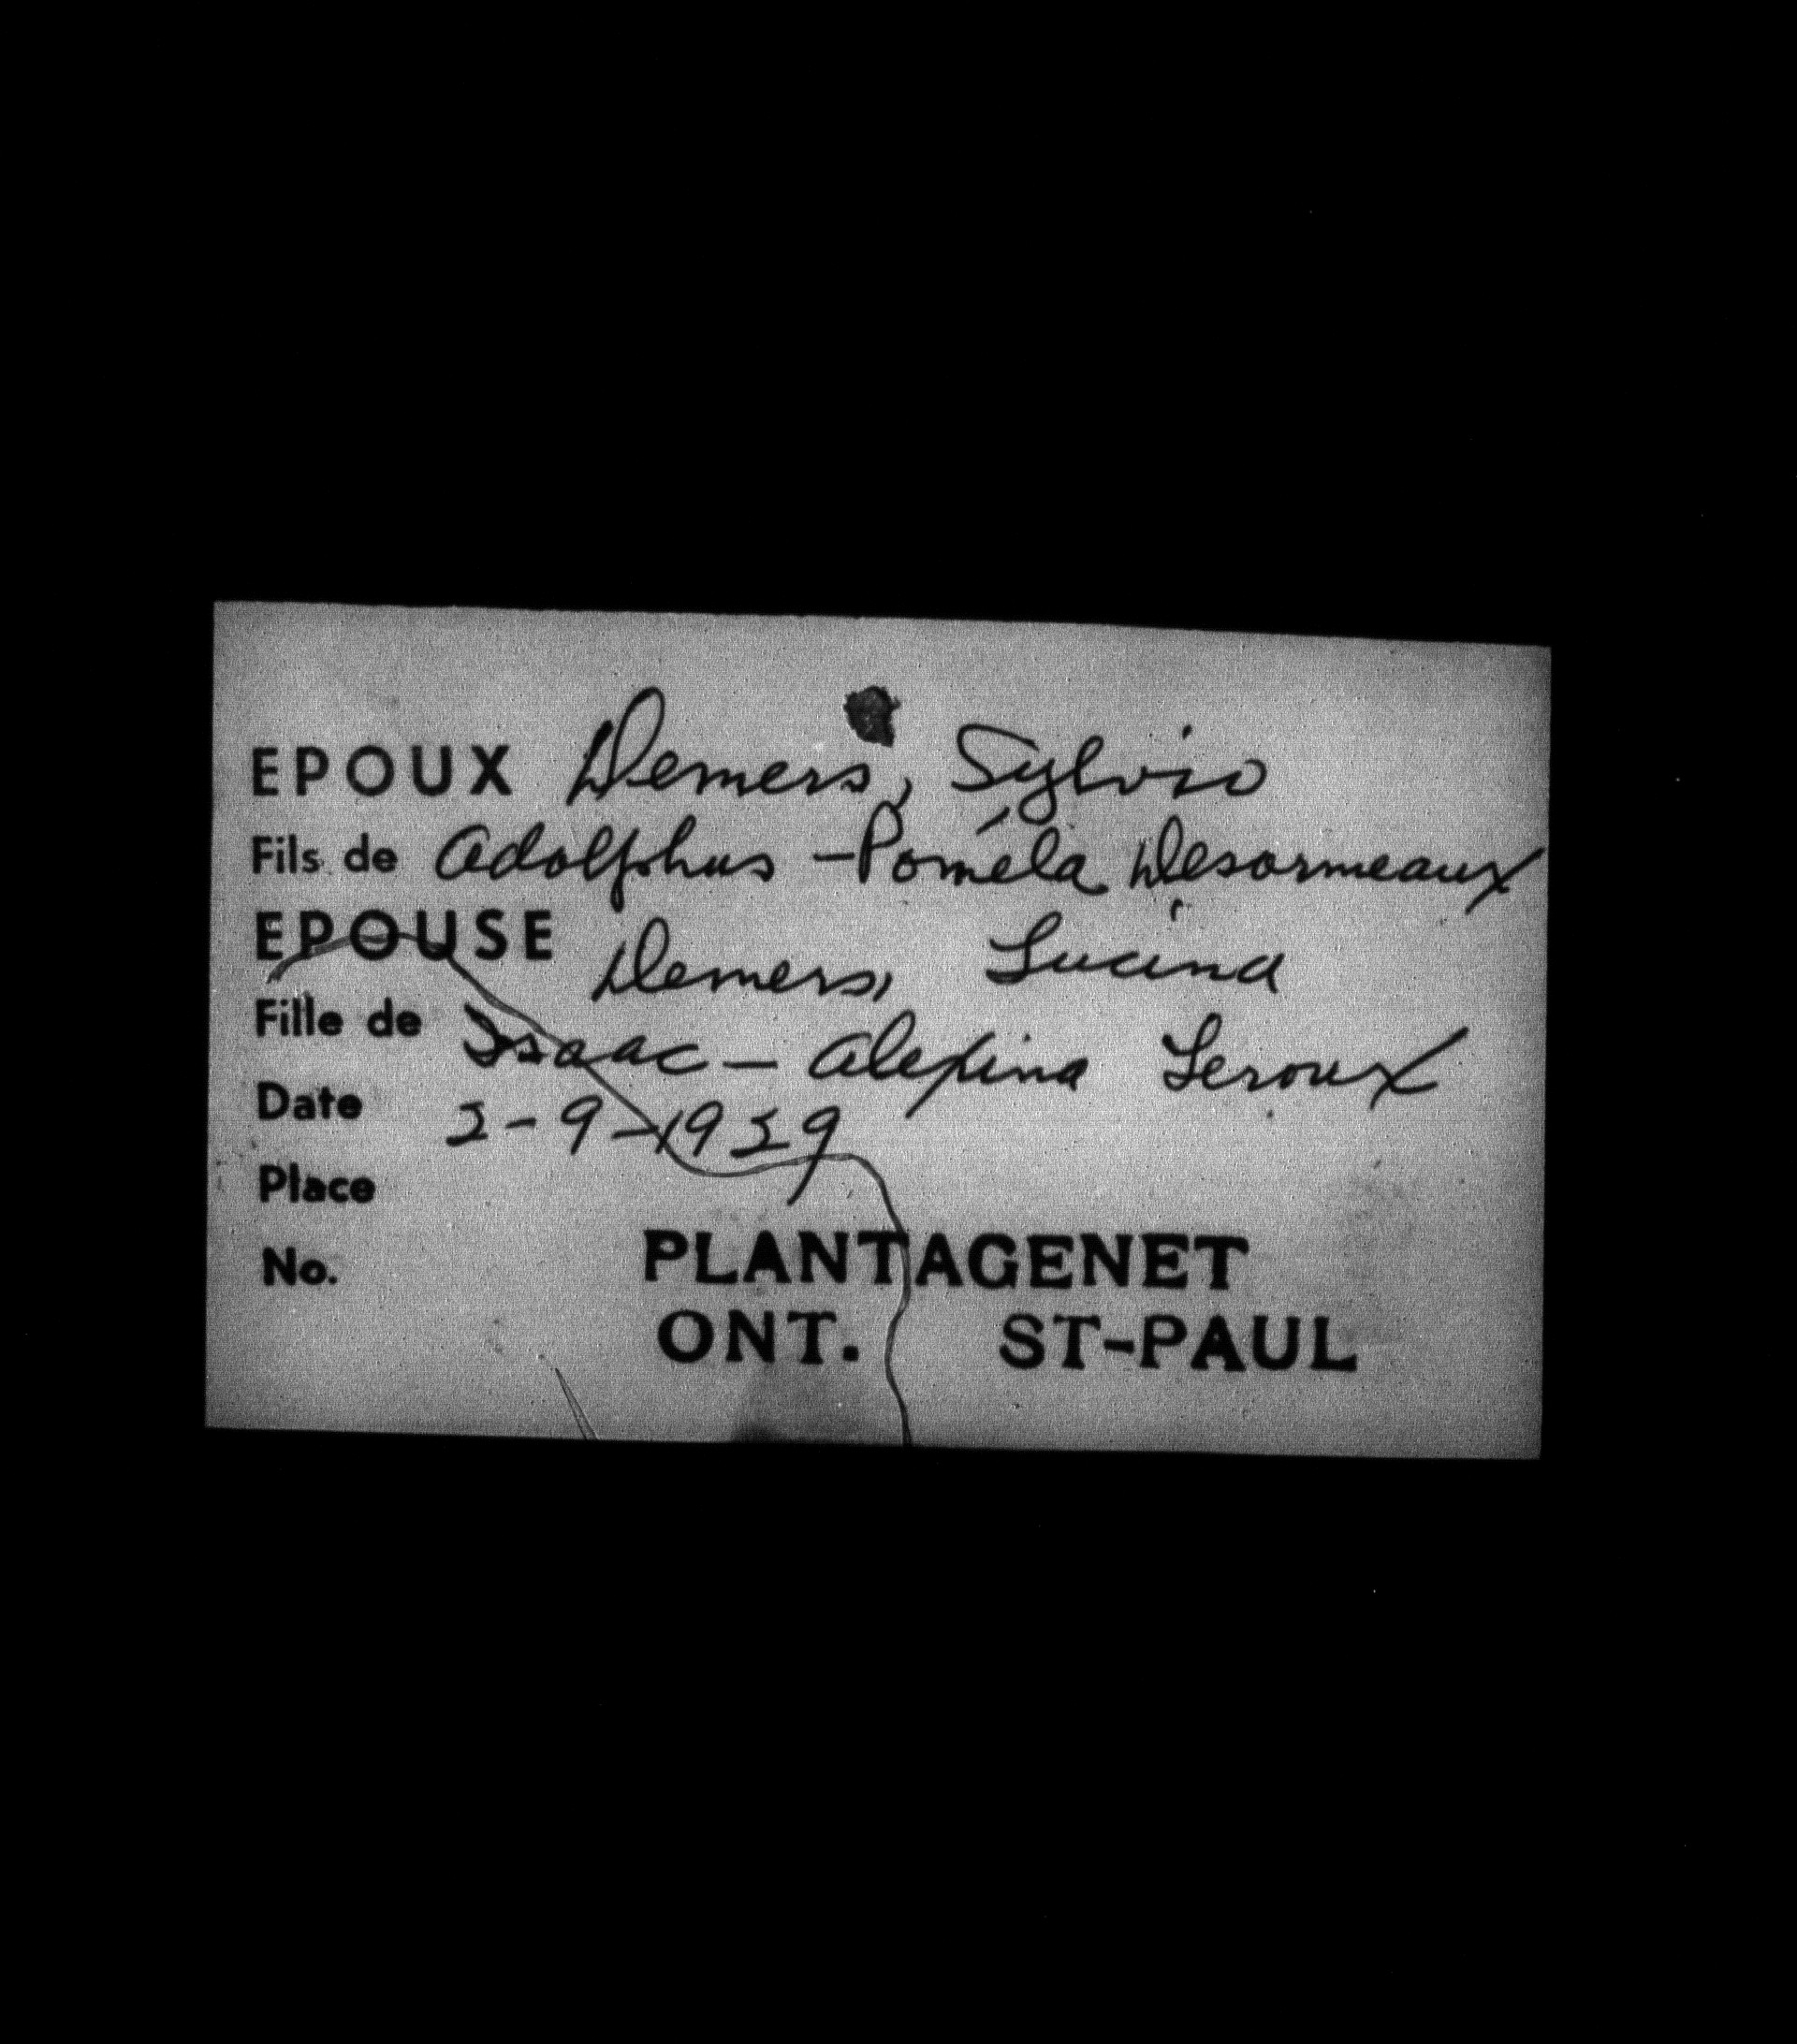 EPOUX Demers, Sylvio
Fils de Adolphus - Poméla Desormeaux
EPOUSE Demers, Lucina
Fille de Isaac - Alexina Leroux
Date 2-9-1939
Place
No.
PLANTAGENET
ONT. ST-PAUL